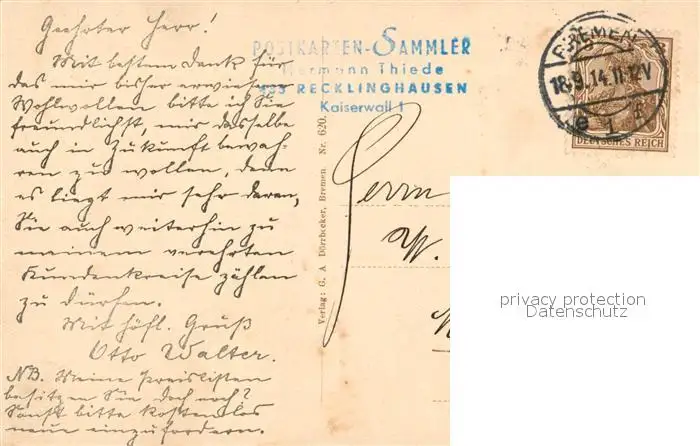 Geehrter Herr!
Mit bestem Dank für
das mir bisher erwiesene
Wohlwollen bitte ich Sie
freundlichst, mir dasselbe
auch in Zukunft bewah-
ren zu wollen, denn
es liegt mir sehr daran,
Sie auch weiterhin zu
meinem verehrten
Kundenkreise zählen
zu dürfen.
Mit höfl. Gruß
Otto Walter.
NB. Meine Preislisten
besitzen Sie doch noch?
Sonst bitte kostenlos
neue einzufordern.
POSTKARTEN-SAMMLER
Hermann Thiede
435 RECKLINGHAUSEN
Kaiserwall 1
Verlag: G. A. Dörrbecker, Bremen. Nr. 620.
Herrn
W.
BREMEN
18.9.14.11-12V
DEUTSCHES REICH
privacy protection
Datenschutz